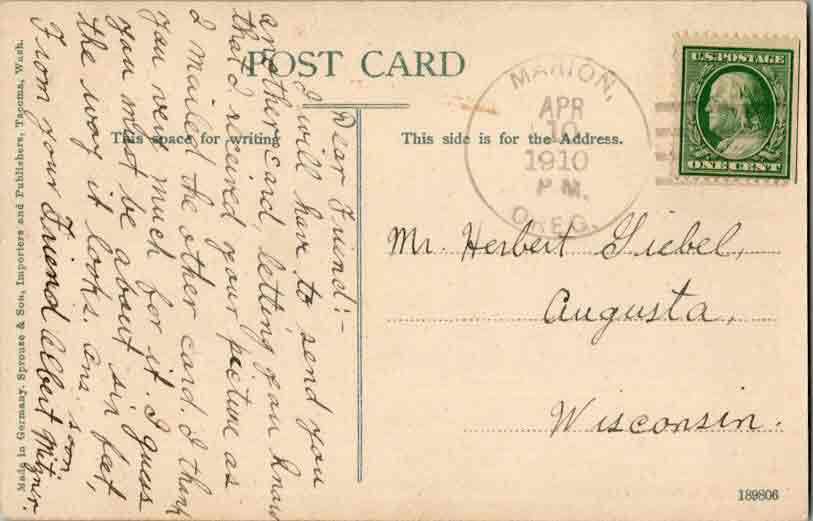 POST CARD
This space for writing
This side is for the Address.
U.S. POSTAGE
ONE CENT
MARION,
APR
10
1910
P.M.
OREG.
Mr. Herbert Giebel,
Augusta,
Wisconsin.
Dear Friend:-
I will have to send you
another card, letting you know
that I received your picture as
I mailed the other card. I think
you very much for it. I guess
you must be about six feet,
the way it looks. Ans. soon
From your Friend Albert
Made in Germany. Sprouse & Son, Importers and Publishers, Tacoma, Wash.
189806